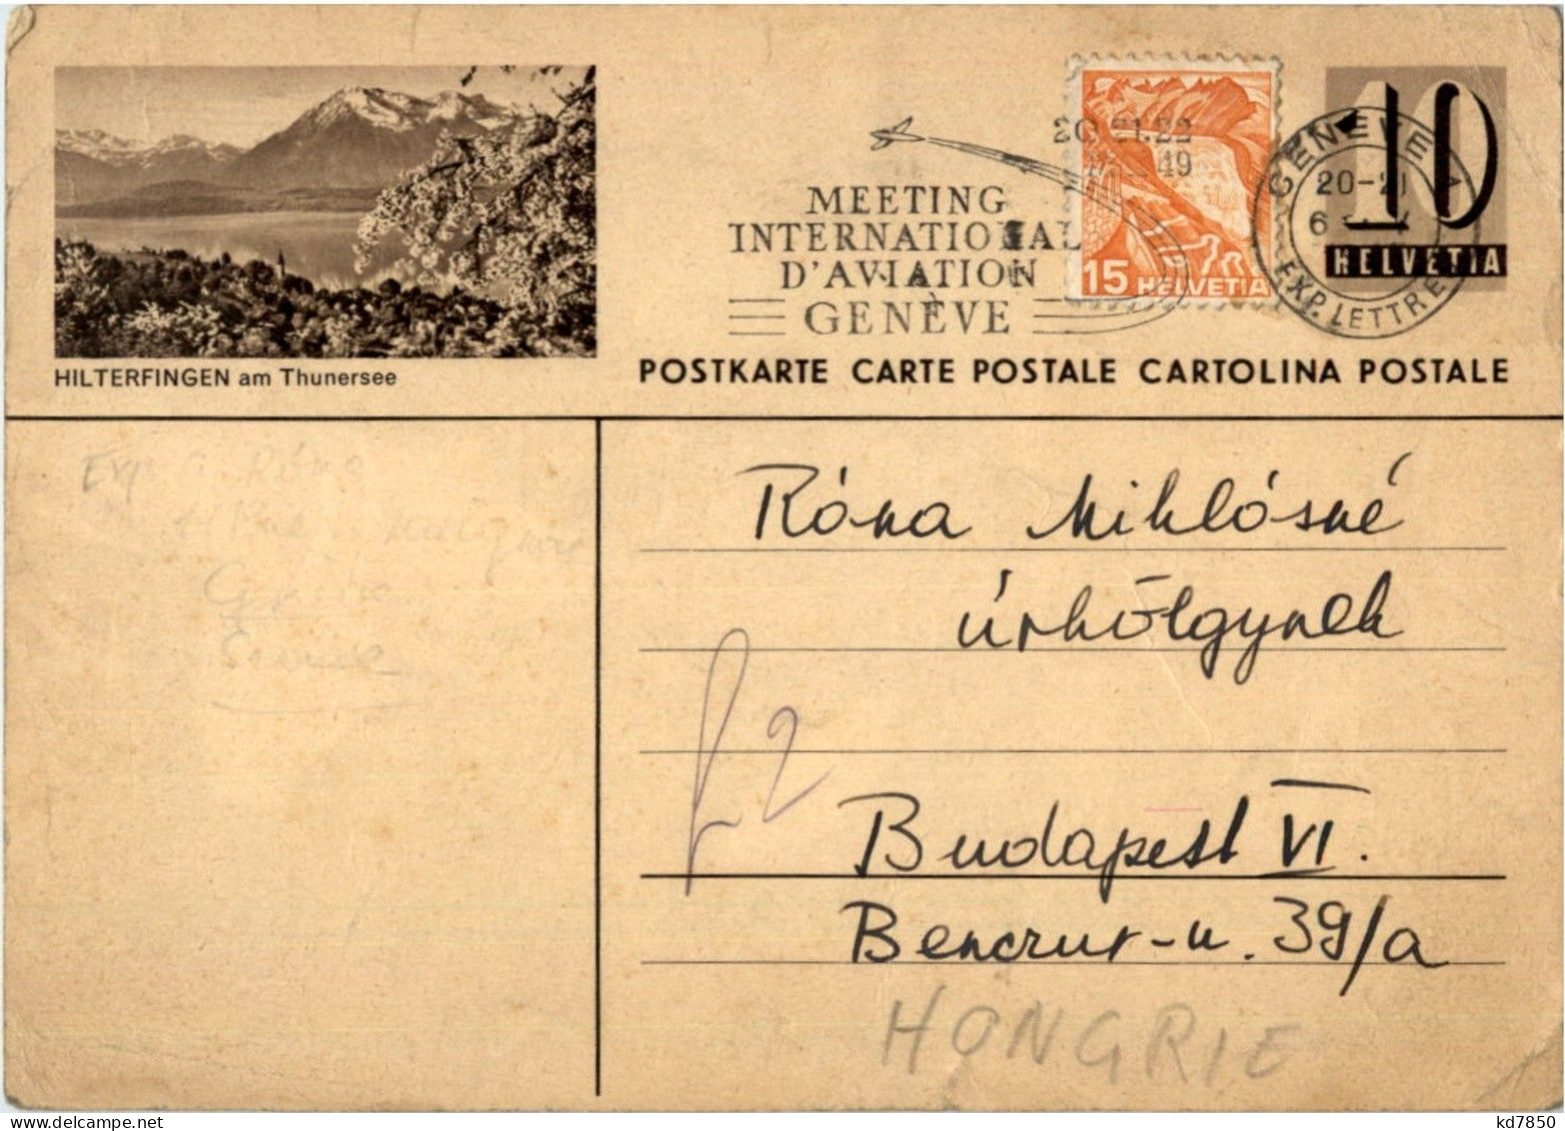 HILTERFINGEN am Thunersee
20.21.22
49
MEETING
INTERNATIONAL
D'AVIATION
GENÈVE
15 HELVETIA
GENÈVE
20-21
EXP. LETTRE
10
HELVETIA
POSTKARTE CARTE POSTALE CARTOLINA POSTALE
Exp Róna
Genève
Suisse
Róna Miklósné
úrhölgynek
Budapest VI.
Benczur-u. 39/a
HONGRIE
delcampe.net
kd7850